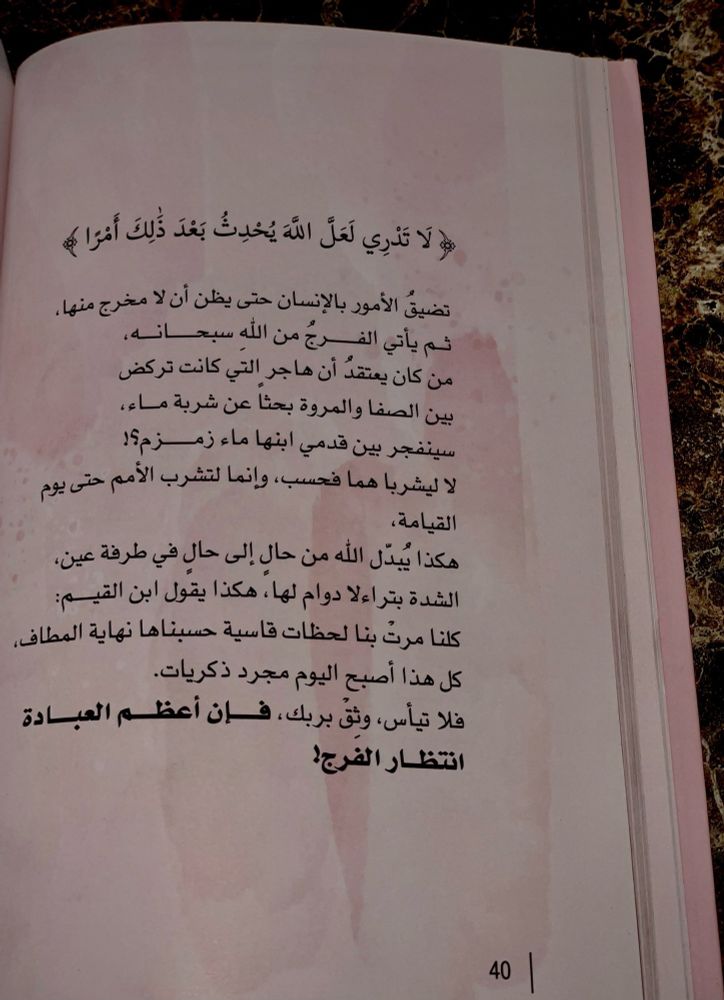 ﴿ لَا تَدْرِي لَعَلَّ اللَّهَ يُحْدِثُ بَعْدَ ذَٰلِكَ أَمْرًا ﴾
تضيقُ الأمور بالإنسان حتى يظن أن لا مخرج منها،
ثم يأتي الفـــرجُ من اللهِ سبحـــانـــه،
من كان يعتقدُ أن هاجر التي كانت تركض
بين الصفا والمروة بحثاً عن شربة مـاء،
سينفجر بين قدمي ابنها ماء زمـــزم؟!
لا ليشربا هما فحسب، وإنما لتشرب الأمم حتى يوم
القيامة،
هكذا يُبدّل الله من حالٍ إلى حالٍ في طرفة عين،
الشدة بتراءلا دوام لها، هكذا يقول ابن القيـم:
كلنا مرتْ بنا لحظات قاسية حسبناها نهاية المطاف،
كل هذا أصبح اليوم مجرد ذكريات.
فلا تيأس، وثِقْ بربك، فــإن أعظــم العبــادة
انتظــار الفرج!
40